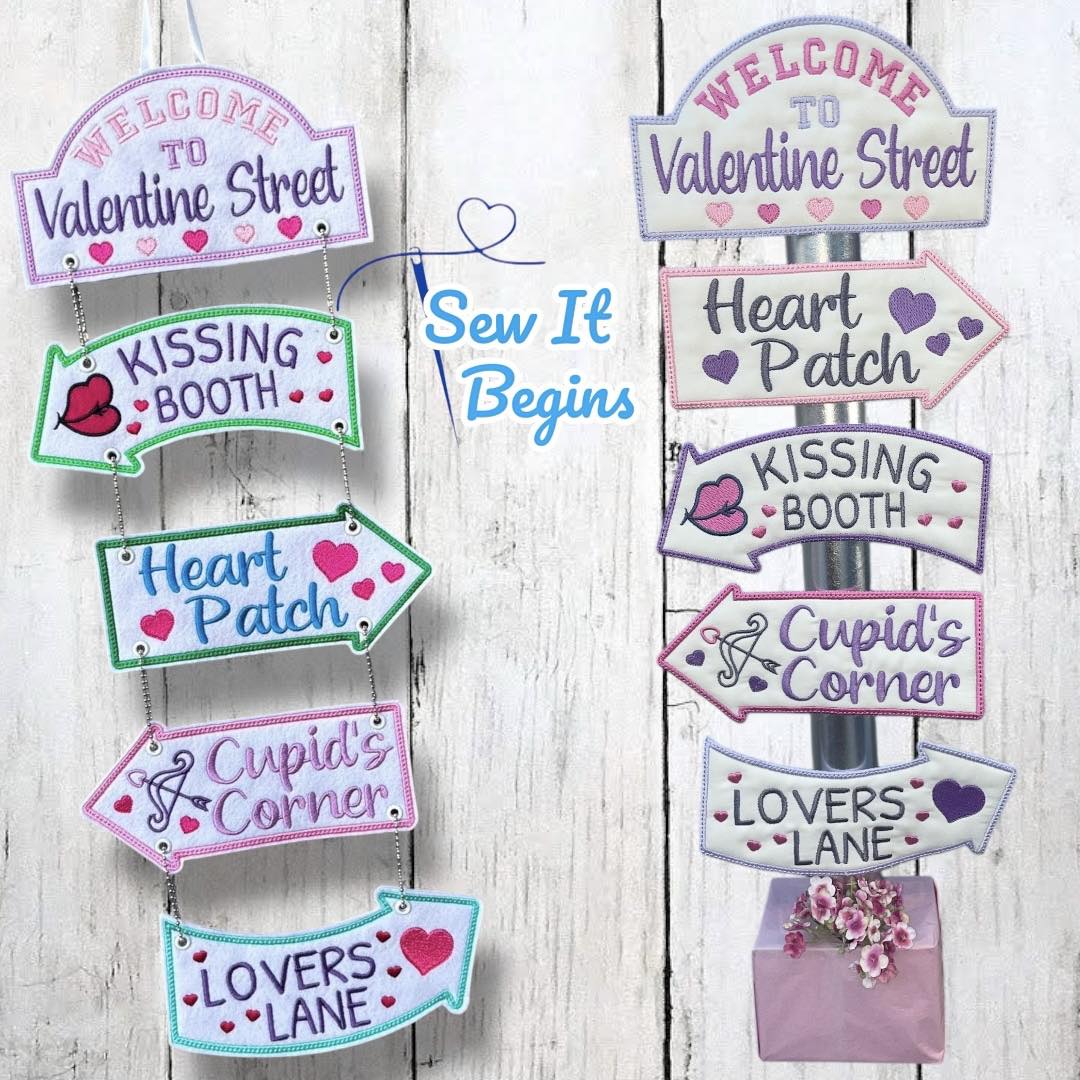 WELCOME
TO
Valentine Street
KISSING
BOOTH
Heart
Patch
Cupid's
Corner
LOVERS
LANE
Sew It
Begins
WELCOME
TO
Valentine Street
Heart
Patch
KISSING
BOOTH
Cupid's
Corner
LOVERS
LANE